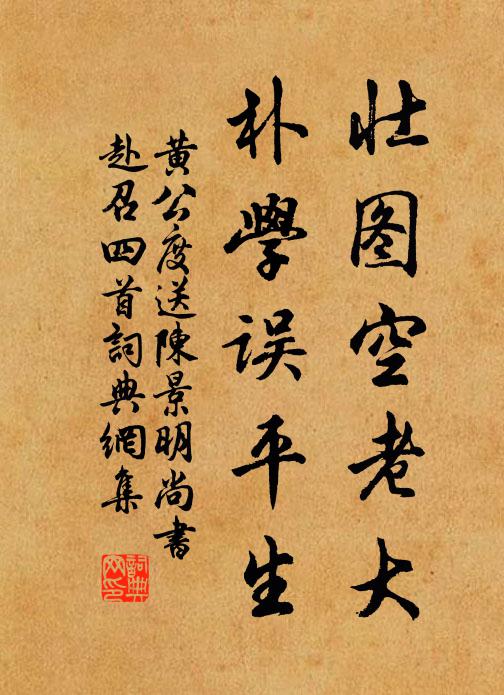 壮图空老大
朴學误平生
黄公度送陳景明尚書
赴召四首詞典網集
詞典
网印